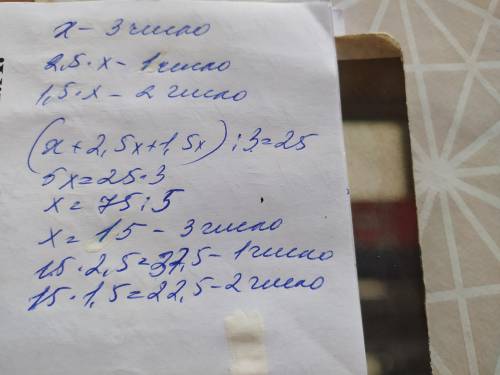 x - 3 число
2,5·x - 1 число
1,5·x - 2 число
(x+2,5x+1,5x):3=25
5x=25·3
x=75:5
x=15 - 3 число
15·2,5=37,5 - 1 число
15·1,5=22,5 - 2 число